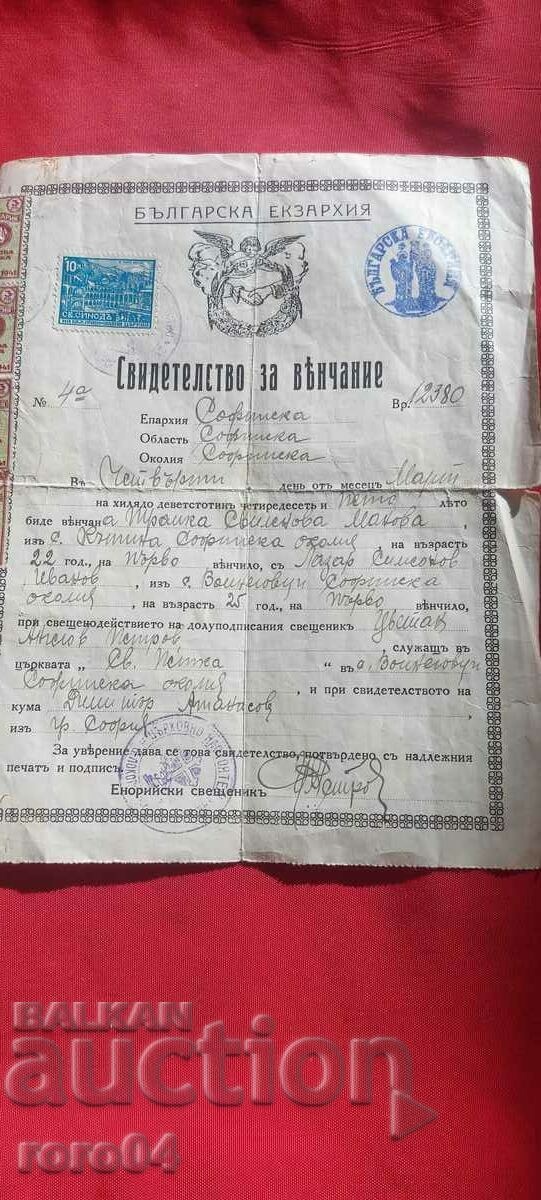 БЪЛГАРСКА ЕКЗАРХИЯ
10 ЛВ.
СВ. СИНОДЪ
БЪЛГАРСКА ЕКЗАРХИЯ
1941
Свидетелство за вѣнчание
№ 4а Вр. 12380
Епархия Софийска
Област Софийска
Околия Софийска
Въ Четвърти день отъ месец Март
на хилядо деветстотин четиредесеть и пето лѣто
биде вѣнчана Трайка Симеонова Манова,
изъ с. Кътина Софийска околия на възраст
22 год., на първо вѣнчило, съ Лазар Симеонов
Иванов, изъ с. Войнеговци Софийска
околия, на възраст 25 год., на Първо вѣнчило,
при свещенодействието на долуподписания свещеник Цвѣтан
Ангелов Петров, служащ въ
църквата „Св. Петка“ въ с. Войнеговци
Софийска околия, и при свидетелството на
кума Димитър Атанасов
изъ гр. София
За увѣрение дава се това свидетелство, потвърдено съ надлежния
печат и подпист.
Енорийски свещеникъ
BALKAN
auction
roro04